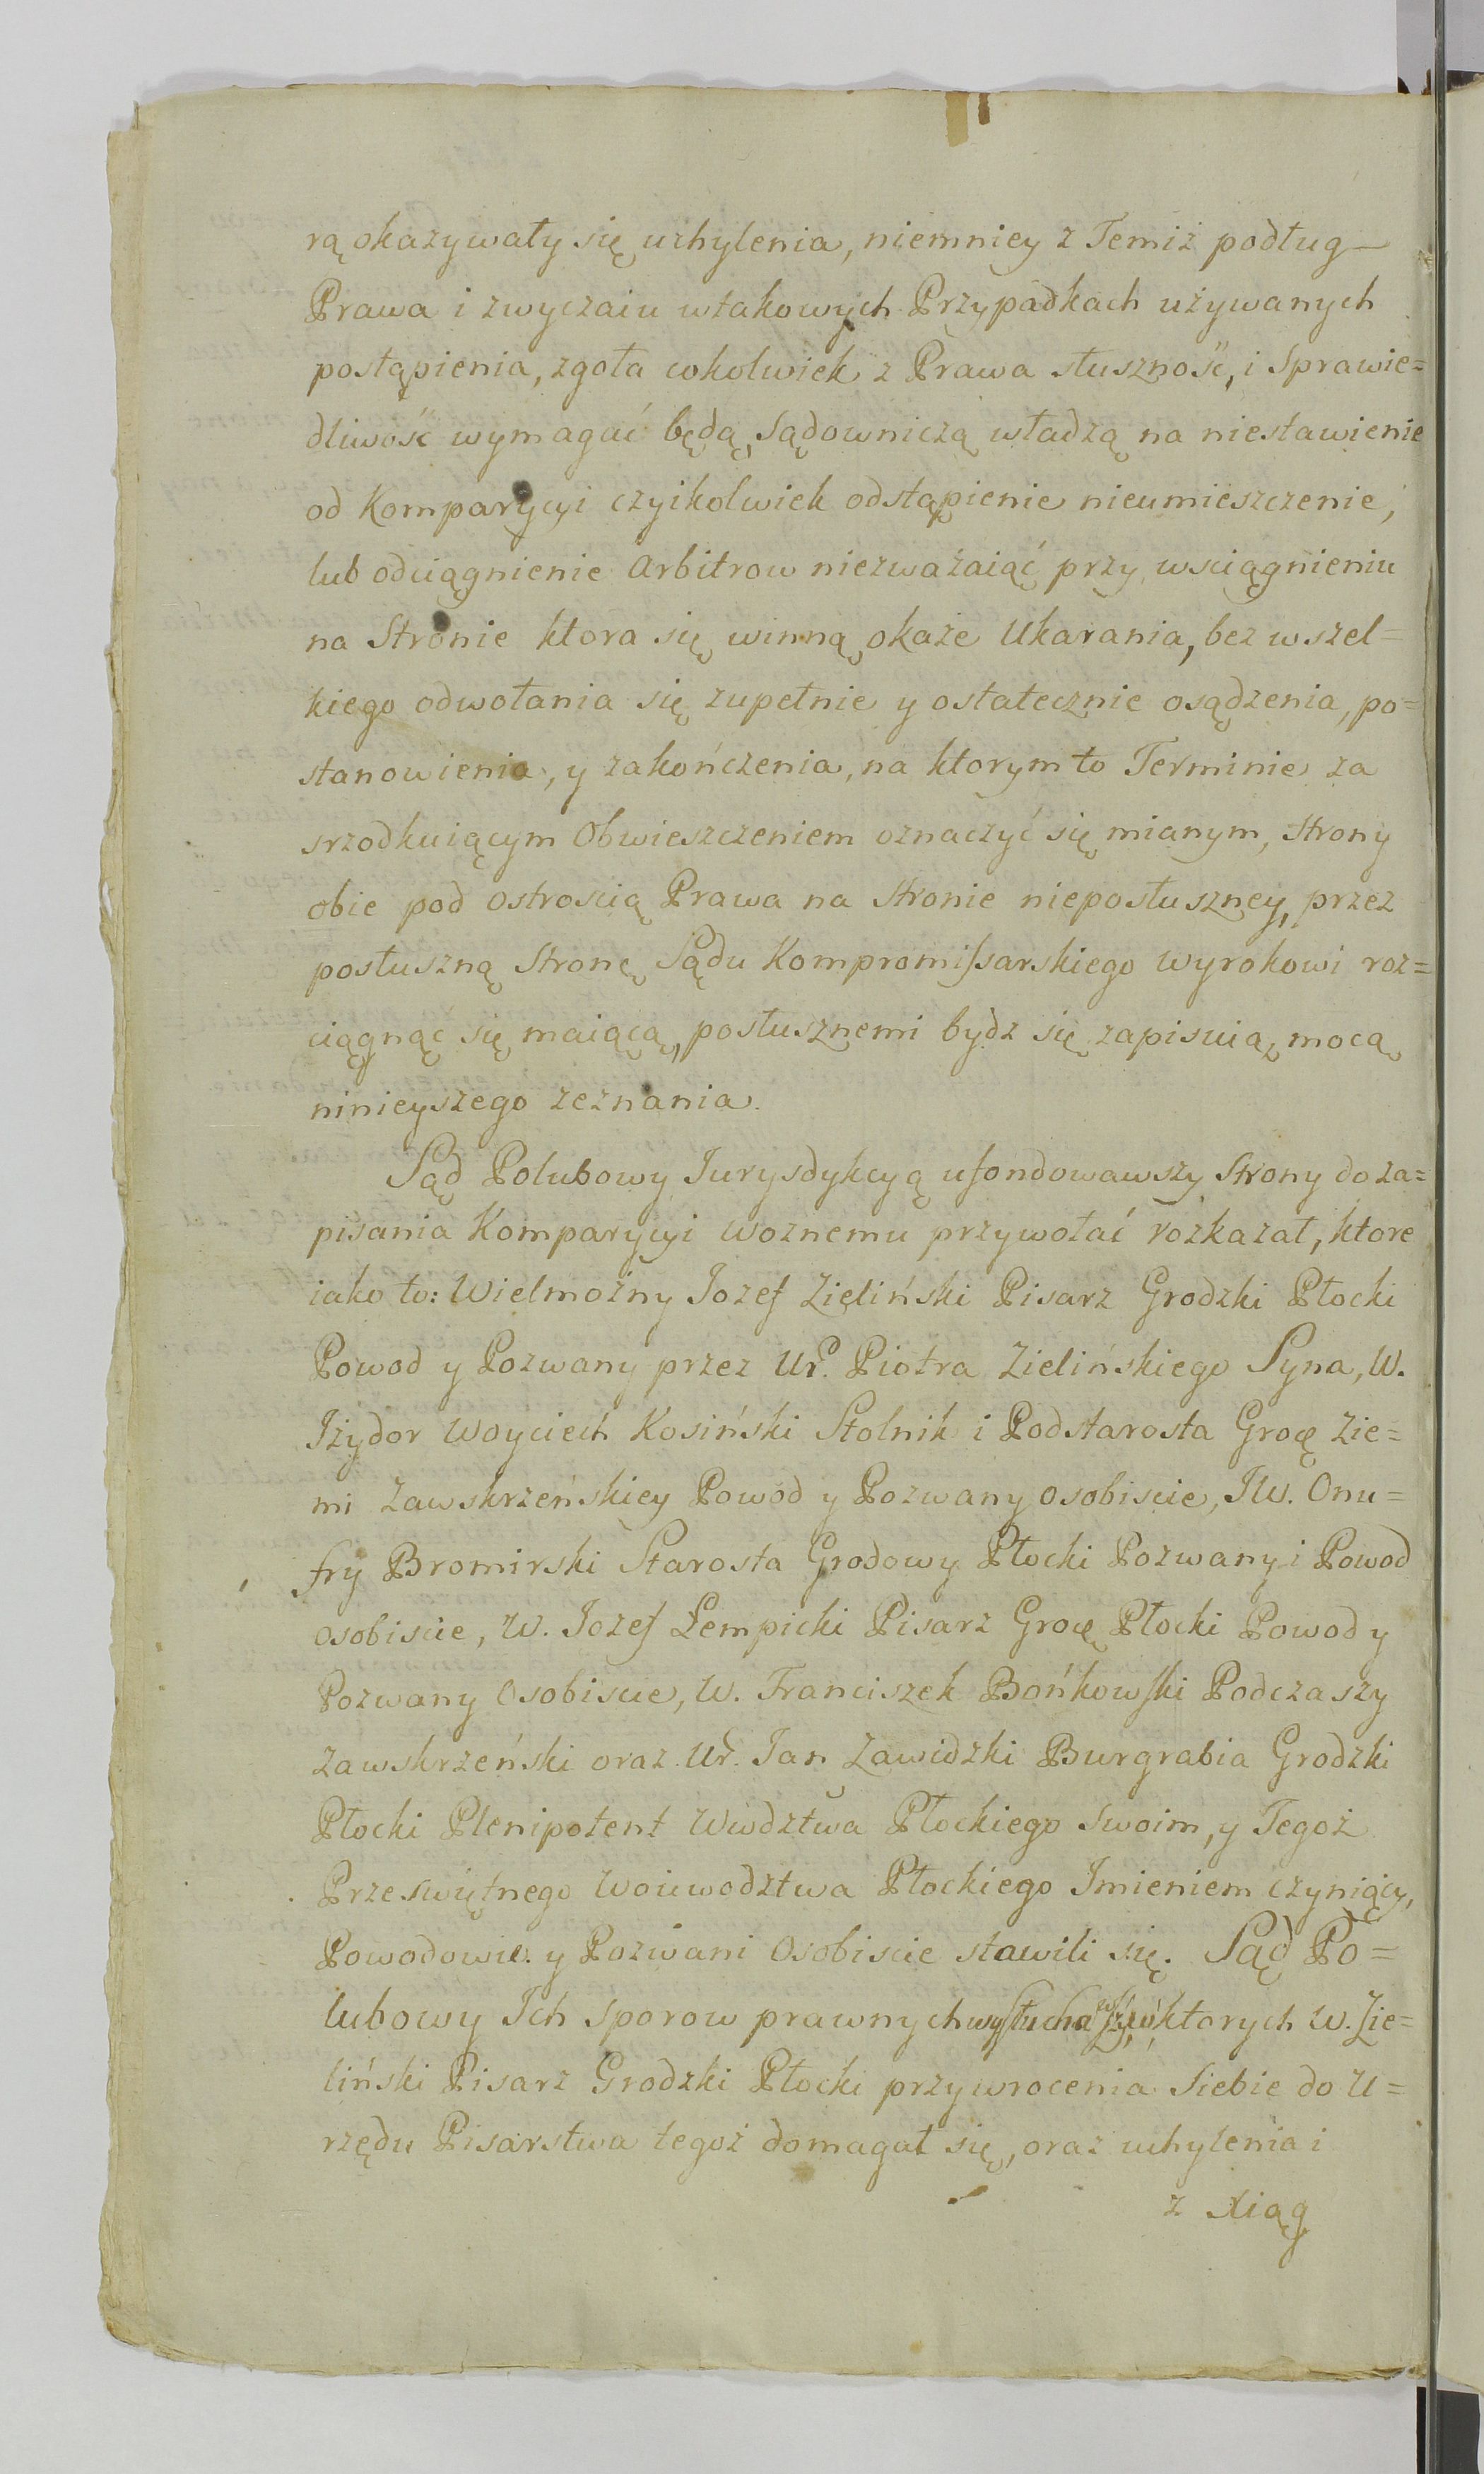 rą okazywały się uchylenia, niemniey z Temiż podług
Prawa i zwyczaiu wtakowych Przypadkach używanych
postąpienia, zgoła cokolwiek z Prawa słuszność, i Sprawie=
dliwość wymagać będą, Sądowniczą władzą na niestawienie
od Komparycyi czyikolwiek odstąpienie nieumieszczenie,
lub odciągnienie Arbitrow niezważaiąć przy wściągnieniu
na Stronie ktora się winną okaże Ukarania, bez wszel=
kiego odwołania się zupełnie y ostatecznie osądzenia, po=
stanowienia, y zakończenia, na ktorym to Terminie za
srzodkuiącym Obwieszczeniem oznaczyć się mianym, Strony
obie pod ostroscią Prawa na Stronie nieposłuszney, przez
posłuszną Stronę Sądu Kompromissarskiego wyrokowi roz=
ciągnąć się maiącą, posłusznemi bydz się zapisuią, mocą
ninieyszego zeznania.
Sąd Polubowy Jurysdykcyą ufondowawszy Strony do za=
pisania Komparycyi woznemu przywołać rozkazał, ktore
iako to: Wielmożny Jozef Zieliński Pisarz Grodzki Płocki
Powod y Pozwany przez Ur. Piotra Zielińskiego Syna, W.
Jżydor Woyciech Kosiński Stolnik i Podstarosta Grocę Zie=
mi Zawskrzeńskiey Powód y Pozwany osobiscie, JW. Onu=
fry Bromirski Starosta Grodowy Płocki Pozwany i Powod
osobiscie, W. Jozef Łempicki Pisarz Grocę Płocki Powod y
Pozwany Osobiscie, W. Franciszek Bońkowski Podczaszy
Zawskrzeński oraz Ur. Jan Zawidzki Burgrabia Grodzki
Płocki Plenipotent Wwdztwa Płockiego Swoim, y Tegoż
Przeswiętnego Woiewodztwa Płockiego Jmieniem czyniący,
Powodowie y Pozwani Osobiscie stawili się. Sąd Po=
lubowy Jch Sporow prawnych wysłuchawszy, w ktorych W. Zie=
liński Pisarz Grodzki Płocki przywrocenia Siebie do U=
rzędu Pisarstwa tegoż domagał się, oraz uchylenia i
z Xiąg